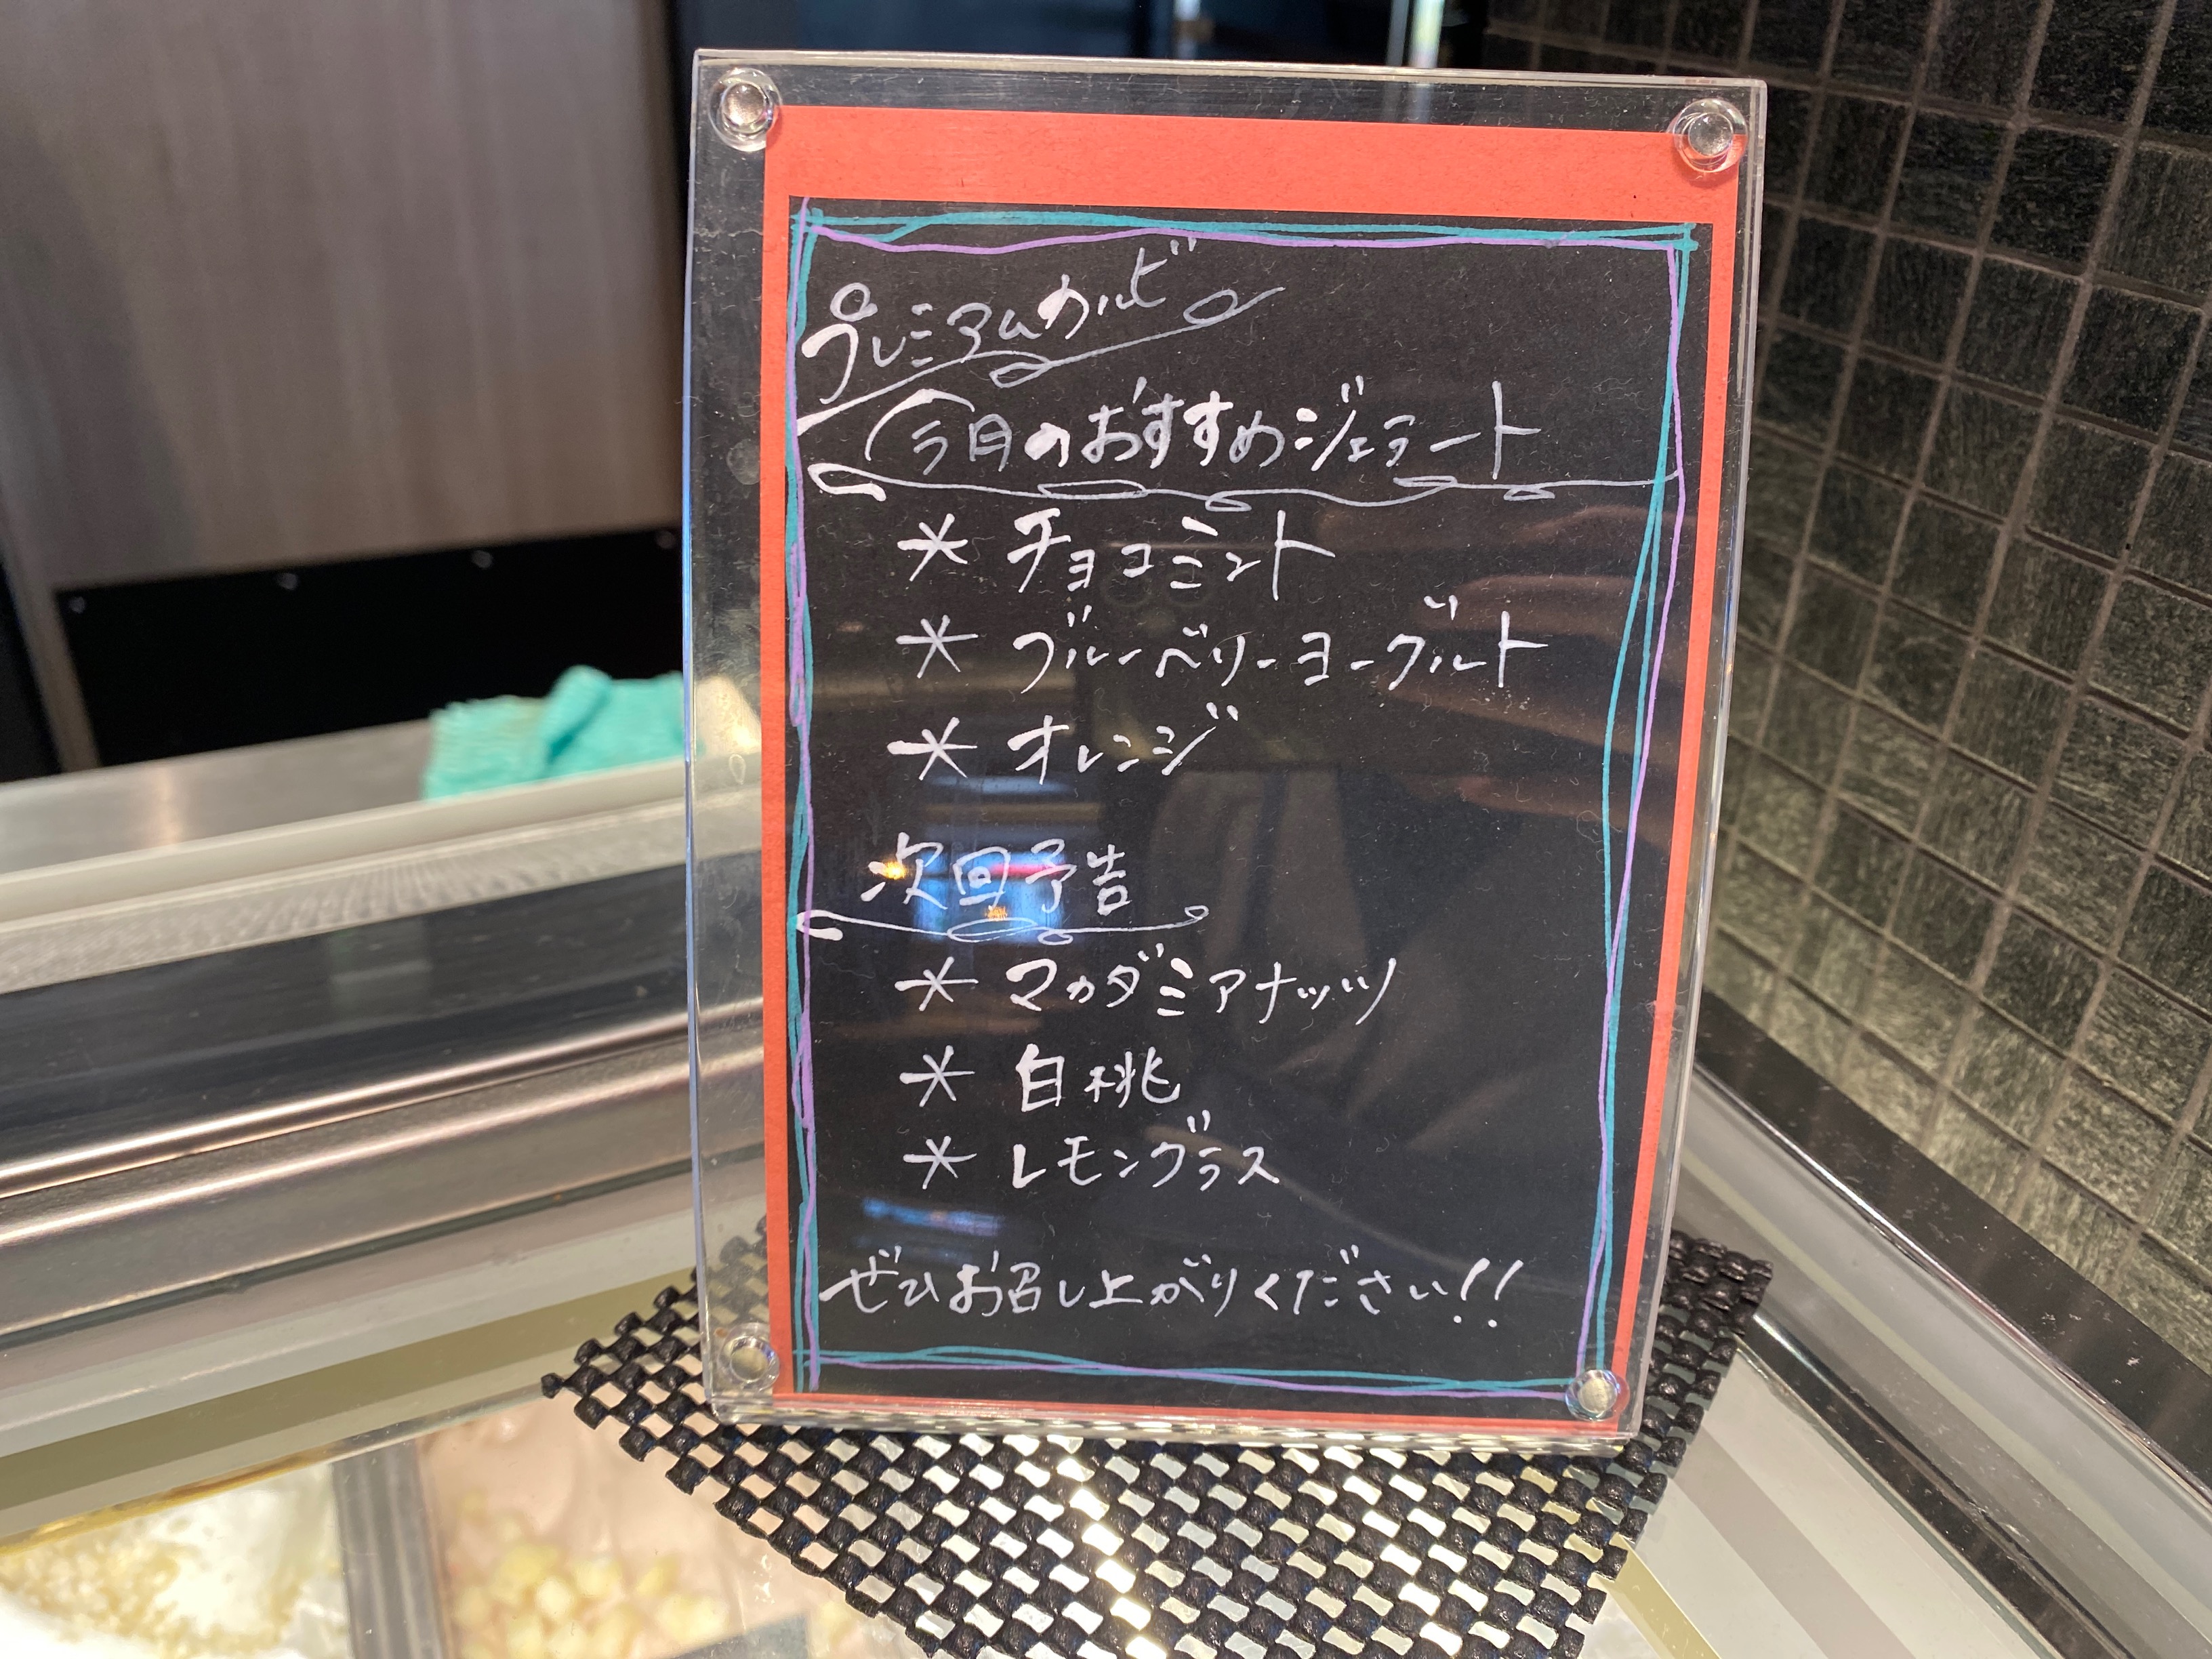 プレミアムカルビ
今月のおすすめジェラート
* チョコミント
* ブルーベリーヨーグルト
* オレンジ
次回予告
* マカダミアナッツ
* 白桃
* レモングラス
ぜひお召し上がりください!!